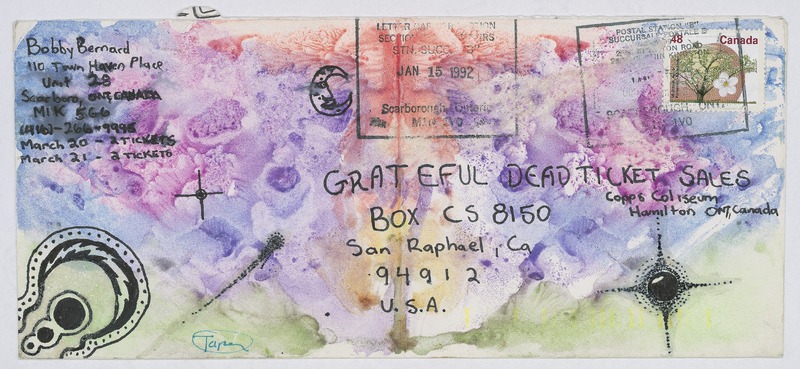 Bobby Bernard
110 Town Haven Place
Unit 28
Scarboro, ONT, CANADA
M1K 5G6
(416)-266-9995
March 20 - 2 TICKETS
March 21 - 2 TICKETS
JAN 15 1992
Scarborough, Ontario
POSTAL STATION "B"
SUCCURSALE POSTALE B
48
Canada
GRATEFUL DEAD TICKET SALES
Copps Coliseum
Hamilton ONT, Canada
BOX CS 8150
San Raphael, Ca
94912
U.S.A.